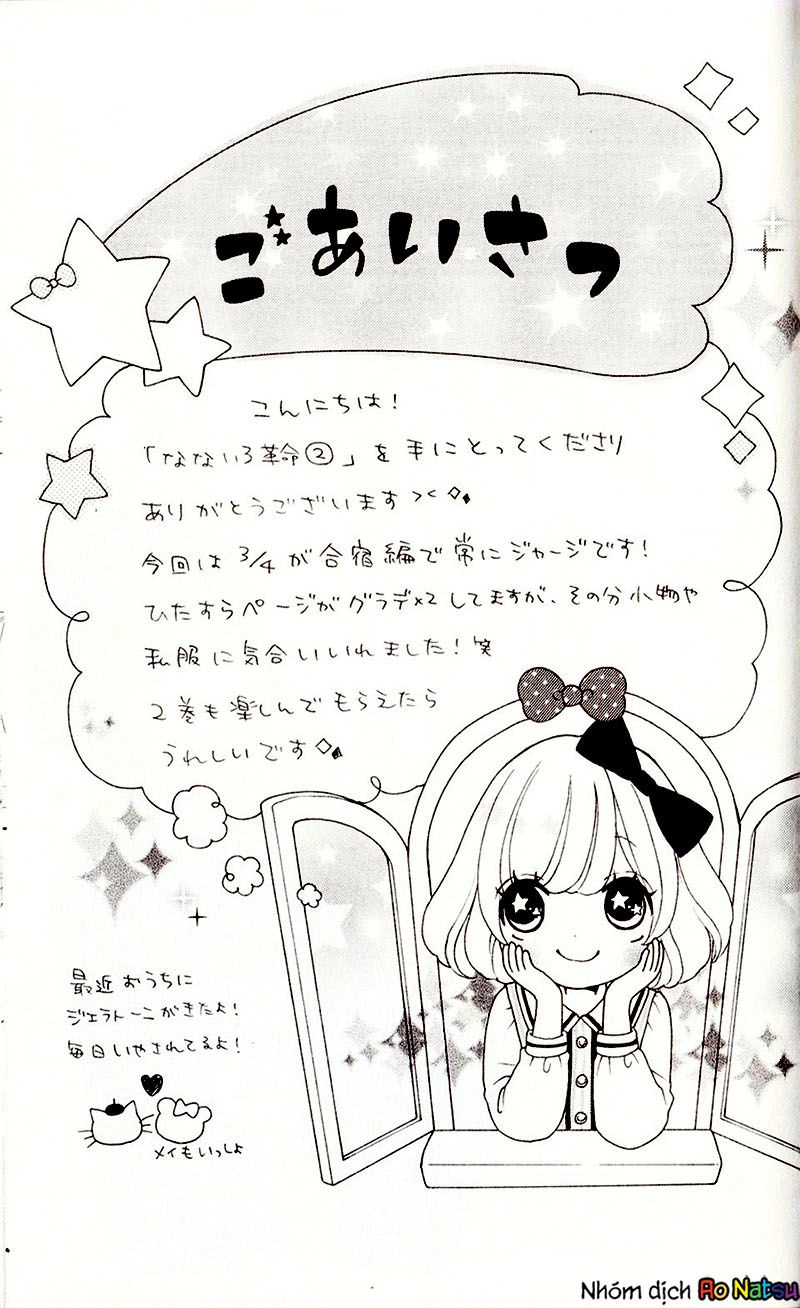 ごあいさつ
こんにちは!
「なないろ革命②」を手にとってくださり
ありがとうございます><
今回は3/4が合宿編で常にジャージです!
ひたすらページがグラデ×2してますが、その分小物や
私服に気合いいれました!笑
2巻も楽しんでもらえたら
うれしいです
最近おうちに
ジェラトーニがきたよ!
毎日いやされてるよ!
メイもいっしょ
Nhóm dịch Ao Natsu